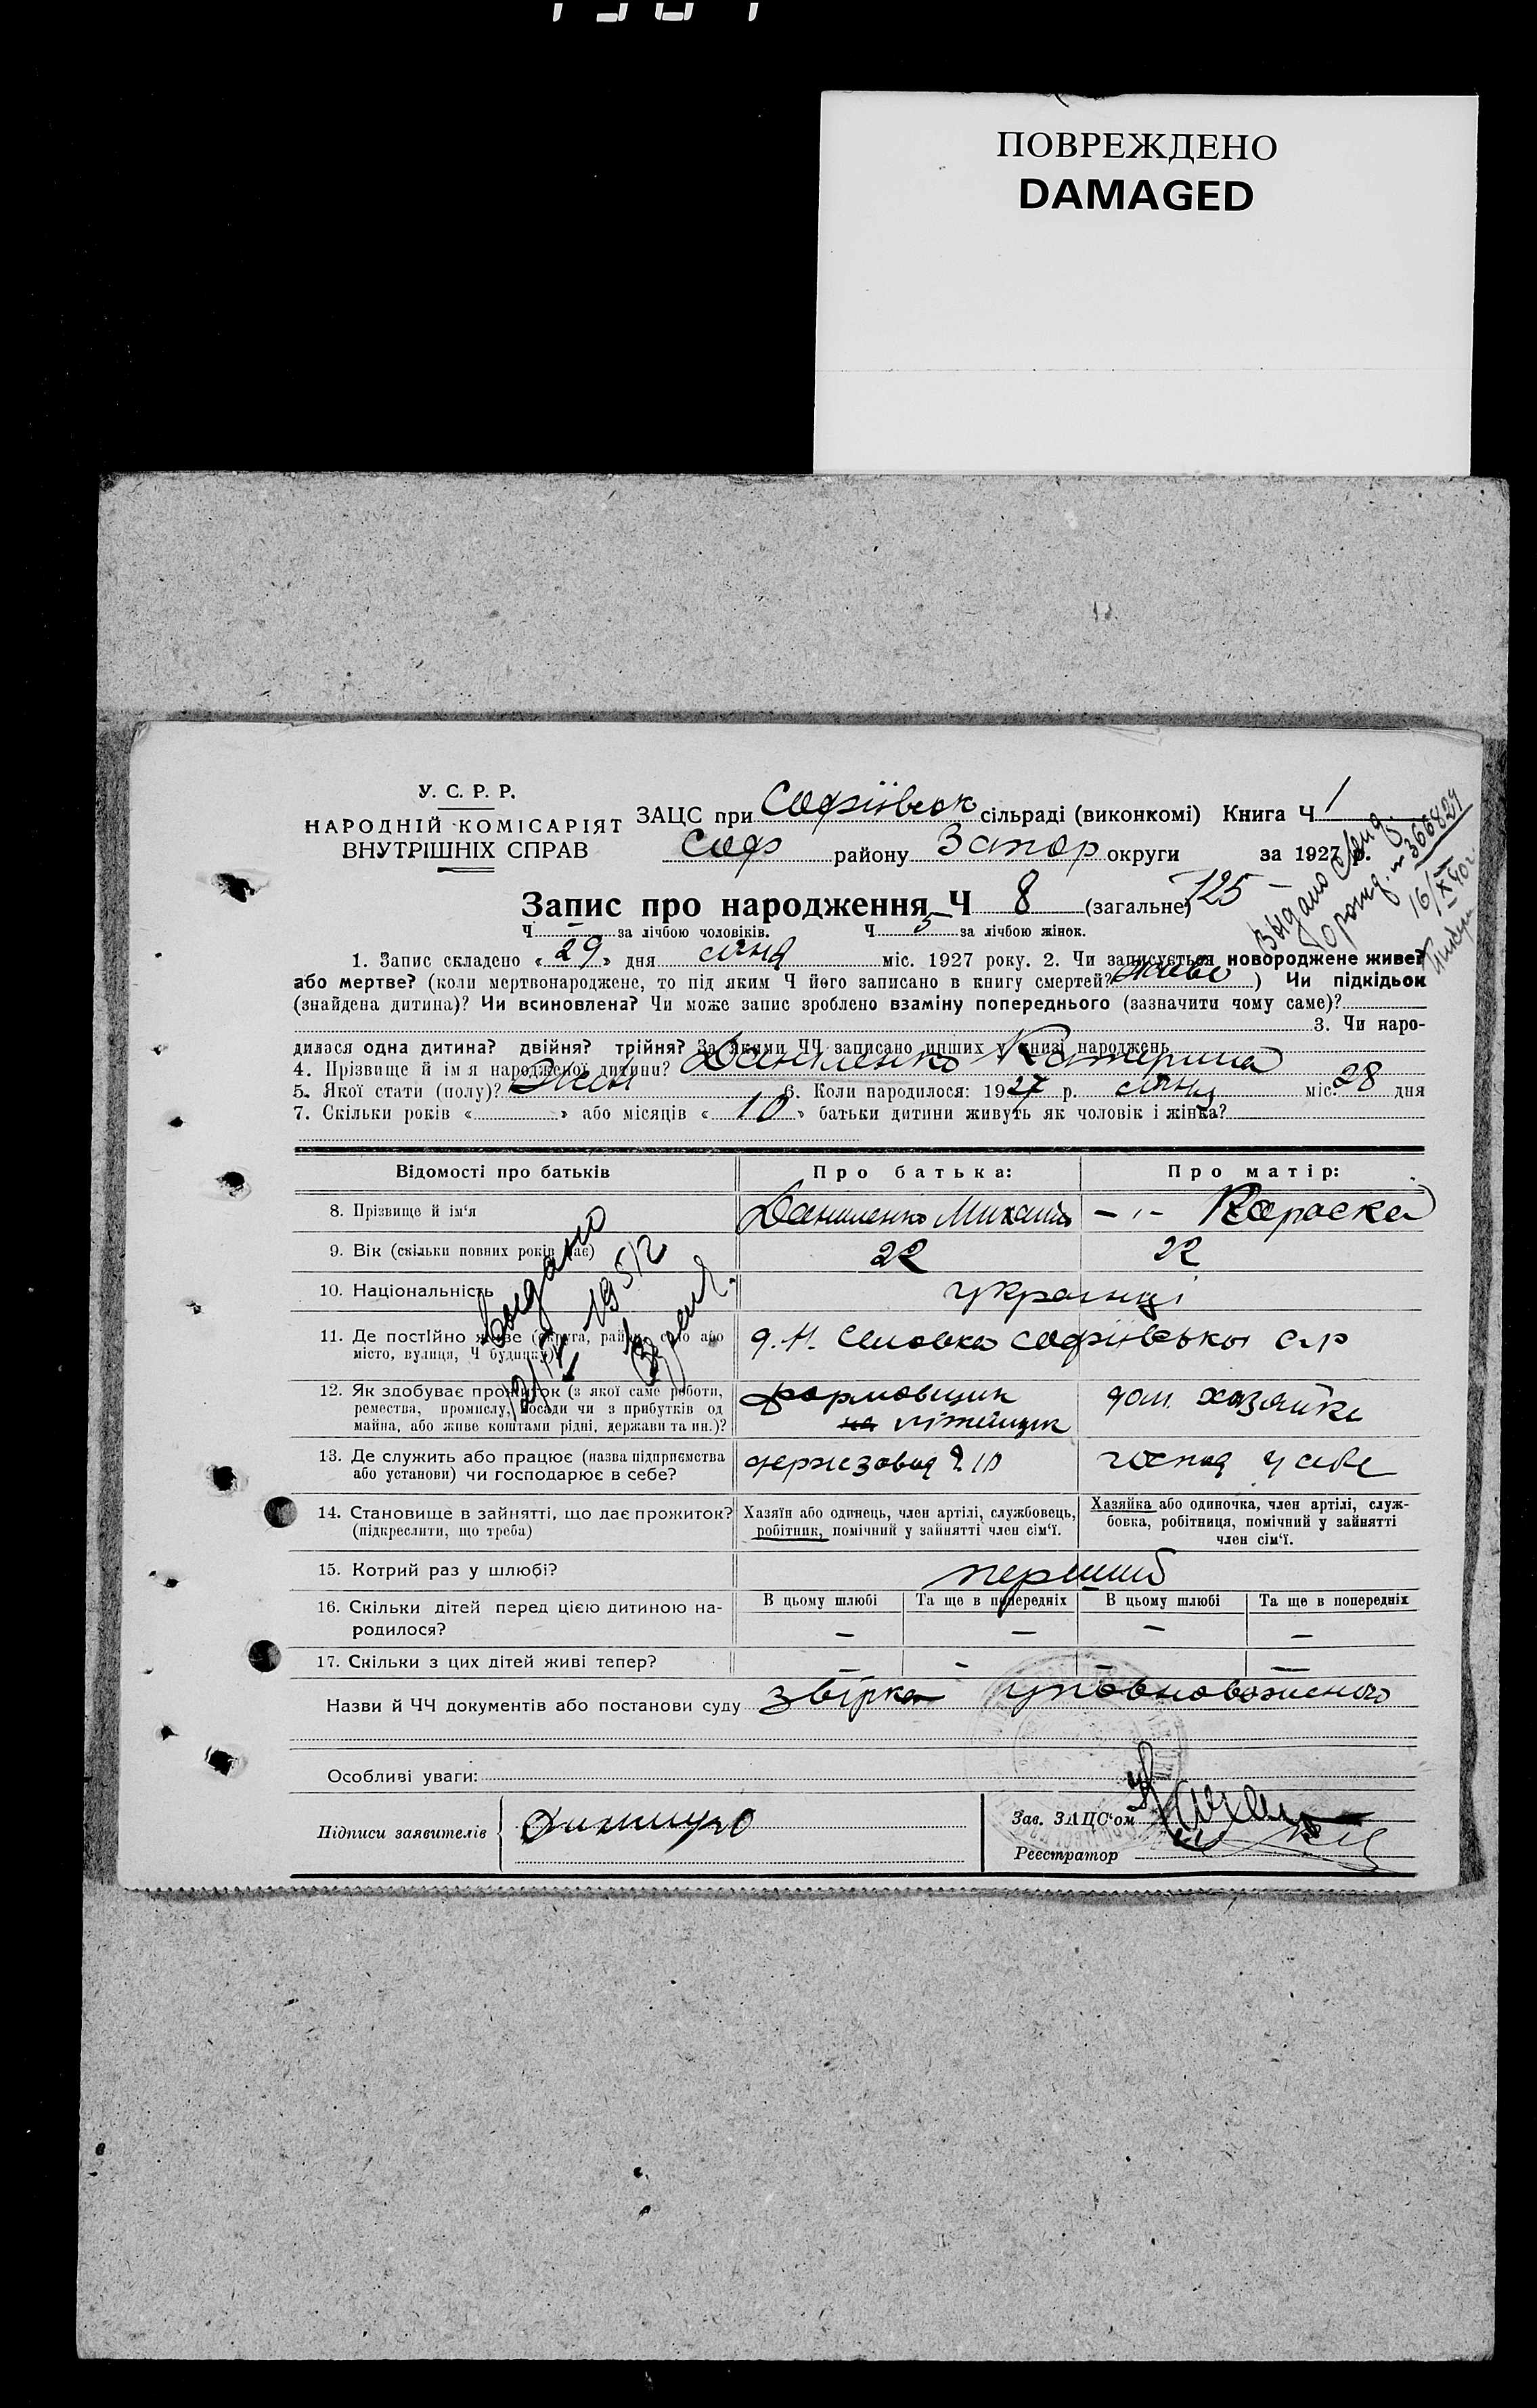 ПОВРЕЖДЕНО
DAMAGED
У. С. Р. Р.
НАРОДНІЙ КОМІСАРІЯТ
ВНУТРІШНІХ СПРАВ
ЗАЦС при Софіївськ сільраді (виконкомі) Книга Ч 1
Соф району Запор округи за 1927 р.
Запис про народження Ч 8 (загальне) 125
Ч. — за лічбою чоловіків. Ч. 5 за лічбою жінок.
Выдано свид.
о рожд. № 366827
16/XII 40 г.
1. Запис складено « 29 » дня січня міс. 1927 року. 2. Чи записується новороджене живе?
або мертве? (коли мертвонароджене, то під яким Ч його записано в книгу смертей? живе ) Чи підкідьок
(знайдена дитина)? Чи всиновлена? Чи може запис зроблено взаміну попереднього (зазначити чому саме)?
3. Чи наро-
дилася одна дитина? двійня? трійня? За якими ЧЧ записано инших у книзі народжень
4. Прізвище й ім'я народженої дитини? Даниленко Катерина
5. Якої стати (полу)? Жін 6. Коли народилося: 1927 р. січня міс. 28 дня
7. Скільки років « » або місяців « 10 » батьки дитини живуть як чоловік і жінка?
Відомості про батьків Про батька: Про матір:
8. Прізвище й ім'я Даниленко Михайло — „ — Параска
9. Вік (скільки повних років має) 22 22
10. Національність українці
11. Де постійно живе (округа, район, село або
місто, вулиця, Ч будинку)?
Софіївської с/р
Выдано
12. Як здобуває прожиток (з якої саме роботи,
ремества, промислу, посади чи з прибутків од
майна, або живе коштами рідні, держави та ин.)?
формовщик
літейщик
дом. хазяйка
13. Де служить або працює (назва підприємства
або установи) чи господарює в себе?
держзавод № 10
господ у себе
14. Становище в зайнятті, що дає прожиток?
(підкреслити, що треба)
Хазяїн або одинець, член артілі, службовець,
робітник, помічний у зайнятті член сім'ї.
Хазяйка або одиночка, член артілі, служ-
бовка, робітниця, помічний у зайнятті
член сім'ї.
15. Котрий раз у шлюбі? перший
16. Скільки дітей перед цією дитиною на-
родилося?
В цьому шлюбі Та ще в попередніх В цьому шлюбі Та ще в попередніх
— — — —
17. Скільки з цих дітей живі тепер? — - — —
Назви й ЧЧ документів або постанови суду звірка уповноваженого
Особливі уваги:
Підписи заявителів
Зав. ЗАЦС'ом
Реєстратор